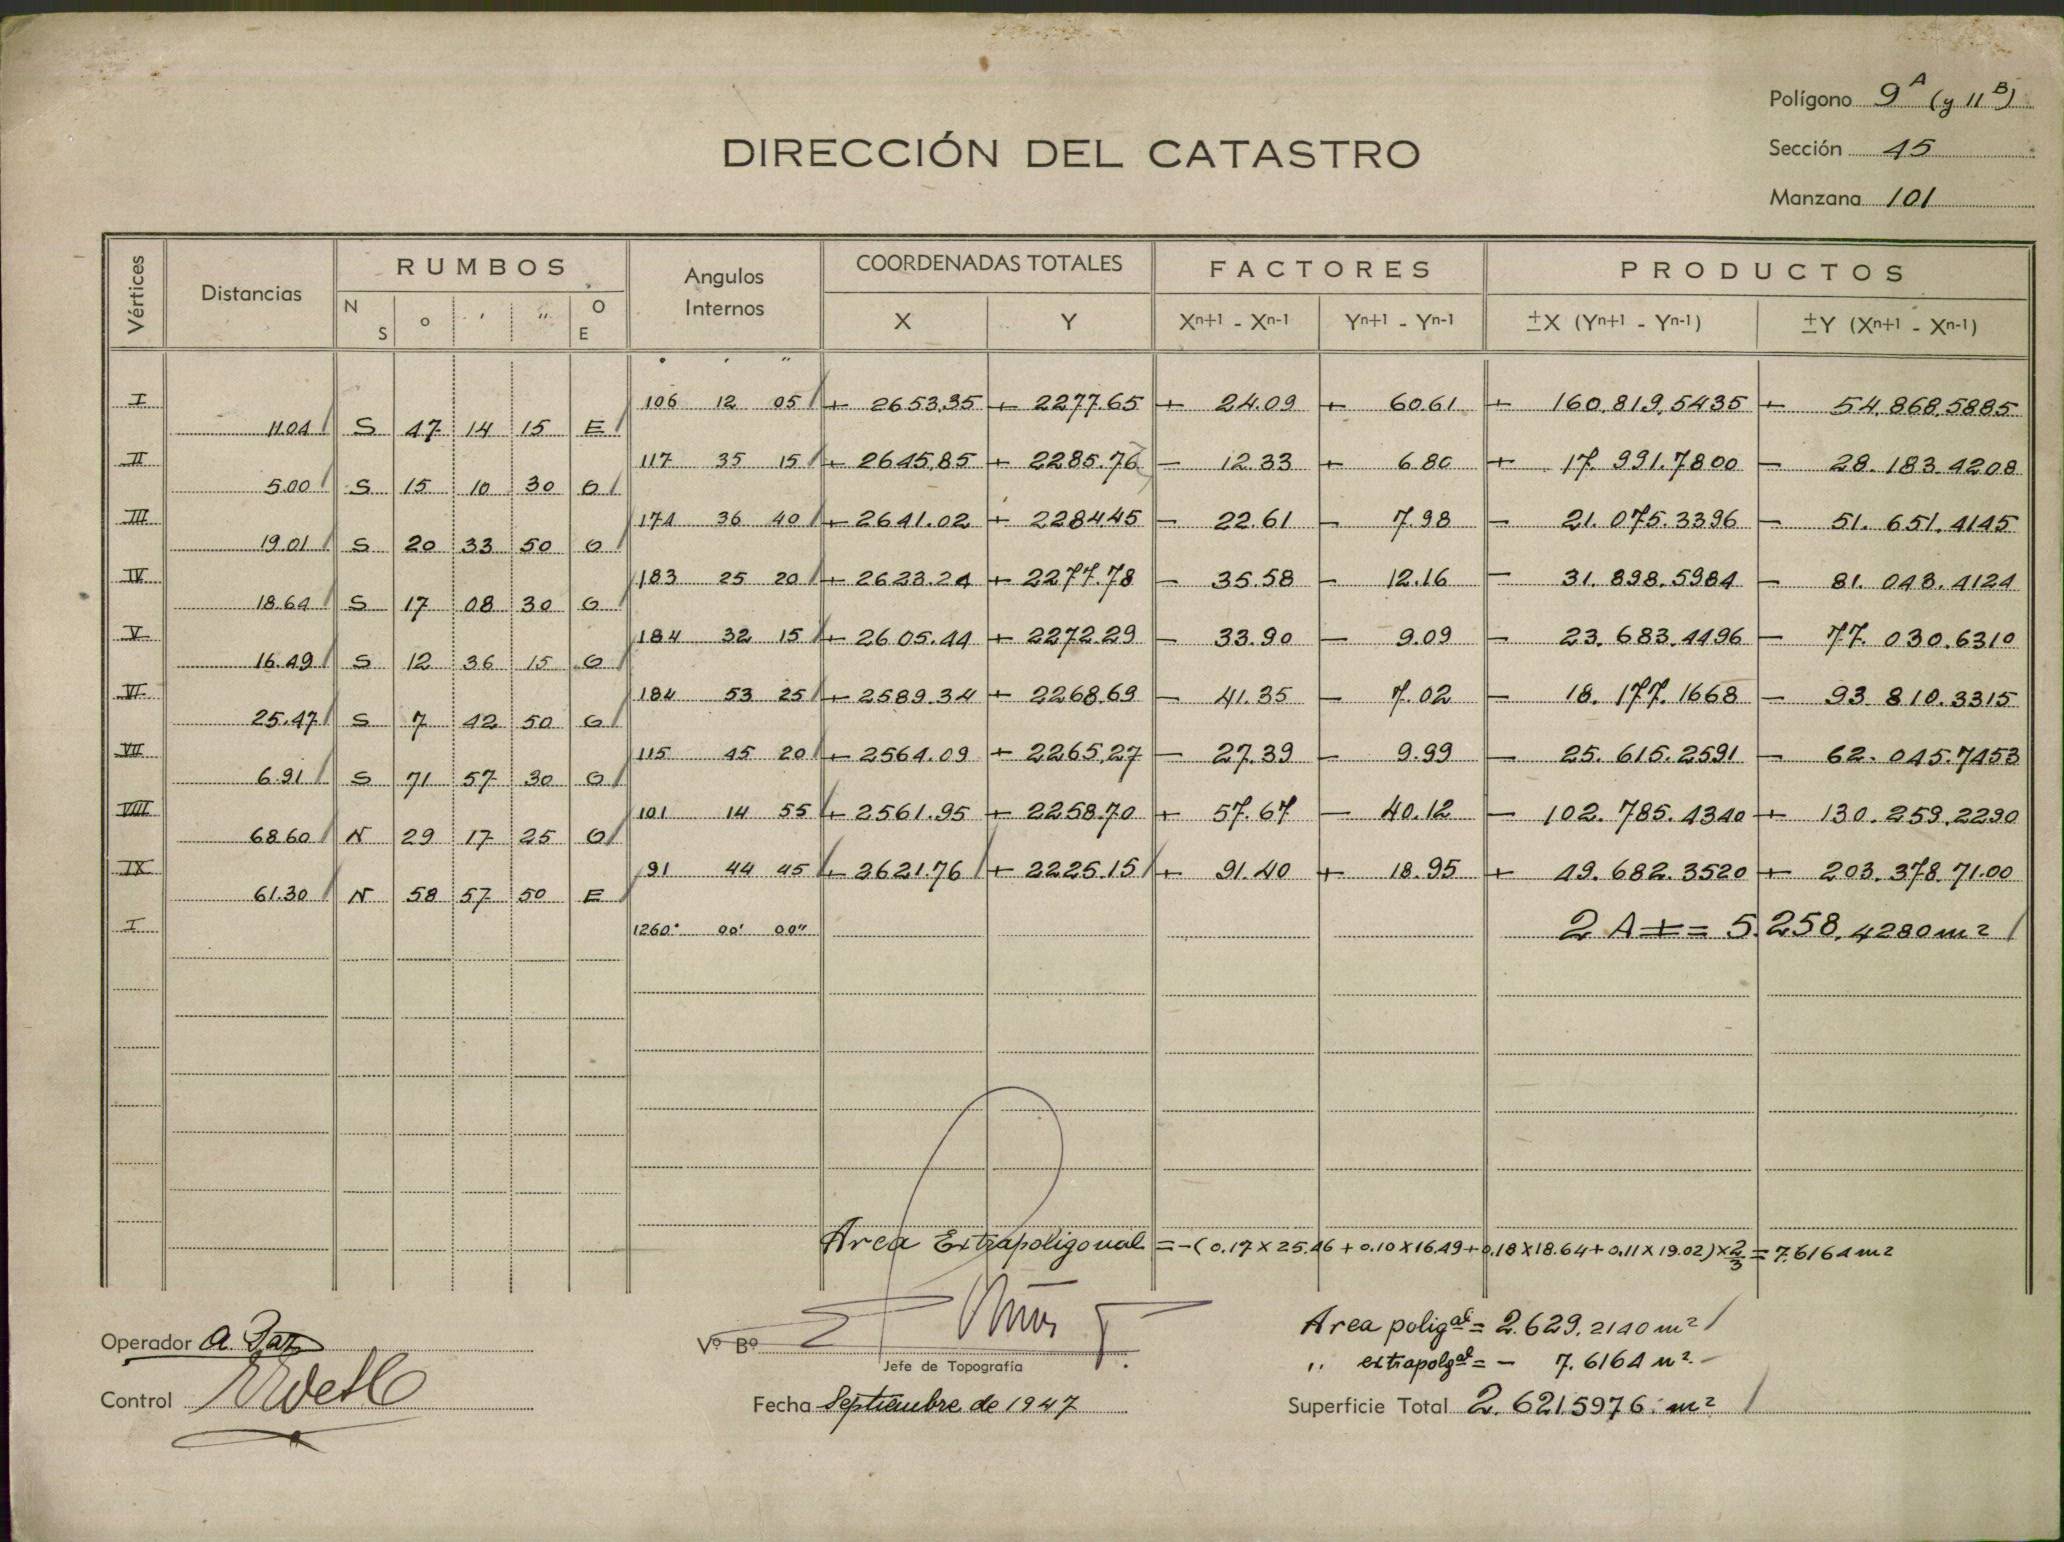 Polígono 9 A (y 11 B)
DIRECCIÓN DEL CATASTRO
Sección 45
Manzana 101
Vértices Distancias RUMBOS Angulos Internos COORDENADAS TOTALES FACTORES PRODUCTOS
N S o ' " O E X Y Xn+1 - Xn-1 Yn+1 - Yn-1 ±X (Yn+1 - Yn-1) ±Y (Xn+1 - Xn-1)
° ' "
I 106 12 05 + 2653.35 + 2277.65 + 24.09 + 60.61 + 160.819.5435 + 54.868.5885
11.04 S 47 14 15 E
II 117 35 15 + 2645.85 + 2285.76 - 12.33 + 6.80 + 17.991.7800 - 28.183.4208
5.00 S 15 10 30 O
III 174 36 40 + 2641.02 + 2284.45 - 22.61 - 7.98 - 21.075.3396 - 51.651.4145
19.01 S 20 33 50 O
IV 183 25 20 + 2623.24 + 2277.78 - 35.58 - 12.16 - 31.898.5984 - 81.043.4124
18.64 S 17 08 30 O
V 184 32 15 + 2605.44 + 2272.29 - 33.90 - 9.09 - 23.683.4496 - 77.030.6310
16.49 S 12 36 15 O
VI 184 53 25 + 2589.34 + 2268.69 - 41.35 - 7.02 - 18.177.1668 - 93.810.3315
25.47 S 7 42 50 O
VII 115 45 20 + 2564.09 + 2265.27 - 27.39 - 9.99 - 25.615.2591 - 62.045.7453
6.91 S 71 57 30 O
VIII 101 14 55 + 2561.95 + 2258.70 + 57.67 - 40.12 - 102.785.4340 + 130.259.2290
68.60 N 29 17 25 O
IX 91 44 45 + 2621.76 + 2225.15 + 91.40 + 18.95 + 49.682.3520 + 203.378.7100
61.30 N 58 57 50 E
I 1260° 00' 00" 2 A ± = 5.258.4280 m²
Area Extrapoligonal = - (0.17 x 25.46 + 0.10 x 16.49 + 0.18 x 18.64 + 0.11 x 19.02) x 2/3 = 7.6164 m²
Area poligal = 2.629.2140 m²
" extrapolgal = - 7.6164 m².
Operador A. Paz
Vº Bº
Jefe de Topografía
Control
Fecha Septiembre de 1947
Superficie Total 2.621.5976 m²